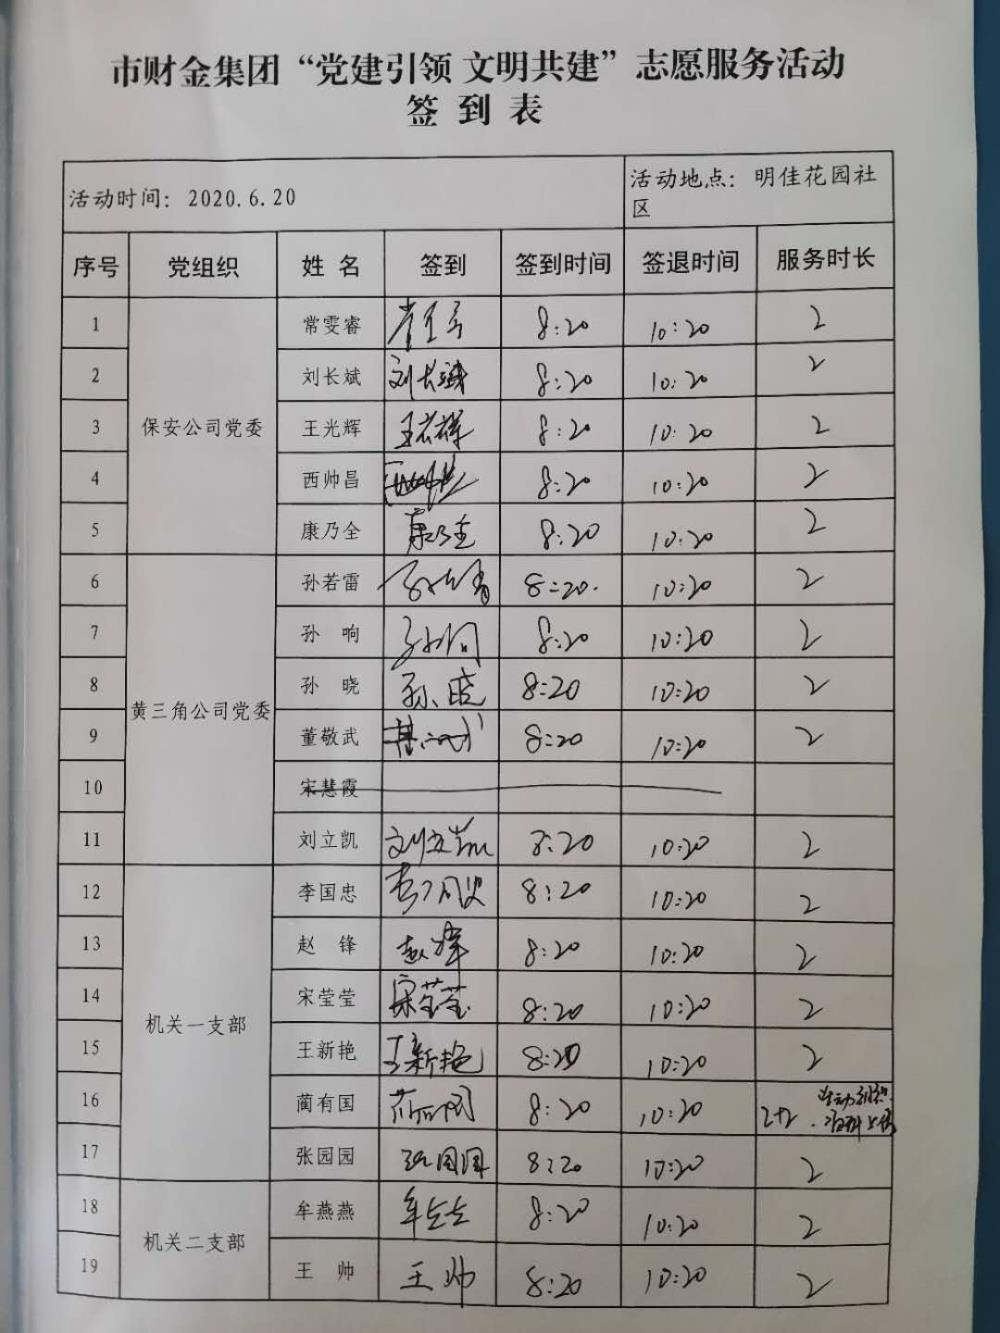 市财金集团“党建引领 文明共建”志愿服务活动
签 到 表
活动时间：2020.6.20 活动地点：明佳花园社
区
序号 党组织 姓 名 签到 签到时间 签退时间 服务时长
保安公司党委
1 常雯睿 8:20 10:20 2
2 刘长斌 刘长斌 8:20 10:20 2
3 王光辉 8:20 10:20 2
4 西帅昌 8:20 10:20 2
5 康乃全 康乃全 8:20 10:20 2
黄三角公司党委
6 孙若雷 8:20. 10:20 2
7 孙 响 孙响 8:20 10:20 2
8 孙 晓 孙晓 8:20 10:20 2
9 董敬武 8:20 10:20 2
10 宋慧霞
11 刘立凯 刘立凯 8:20 10:20 2
机关一支部
12 李国忠 李国忠 8:20 10:20 2
13 赵 锋 赵锋 8:20 10:20 2
14 宋莹莹 宋莹莹 8:20 10:20 2
15 王新艳 王新艳 8:20 10:20 2
16 蔺有国 8:20 10:20 2+2
17 张园园 张园园 8:20 10:20 2
机关二支部
18 牟燕燕 8:20 10:20 2
19 王 帅 王帅 8:20 10:20 2